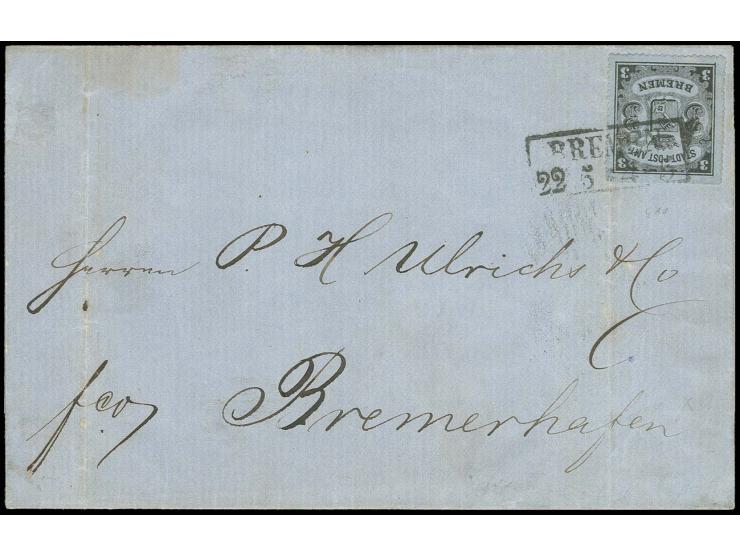 3 3
BREMEN
STADT-POST-AMT
3 3
BREMEN
22 5
Herren P. H Ulrichs & Co
fco Bremerhafen